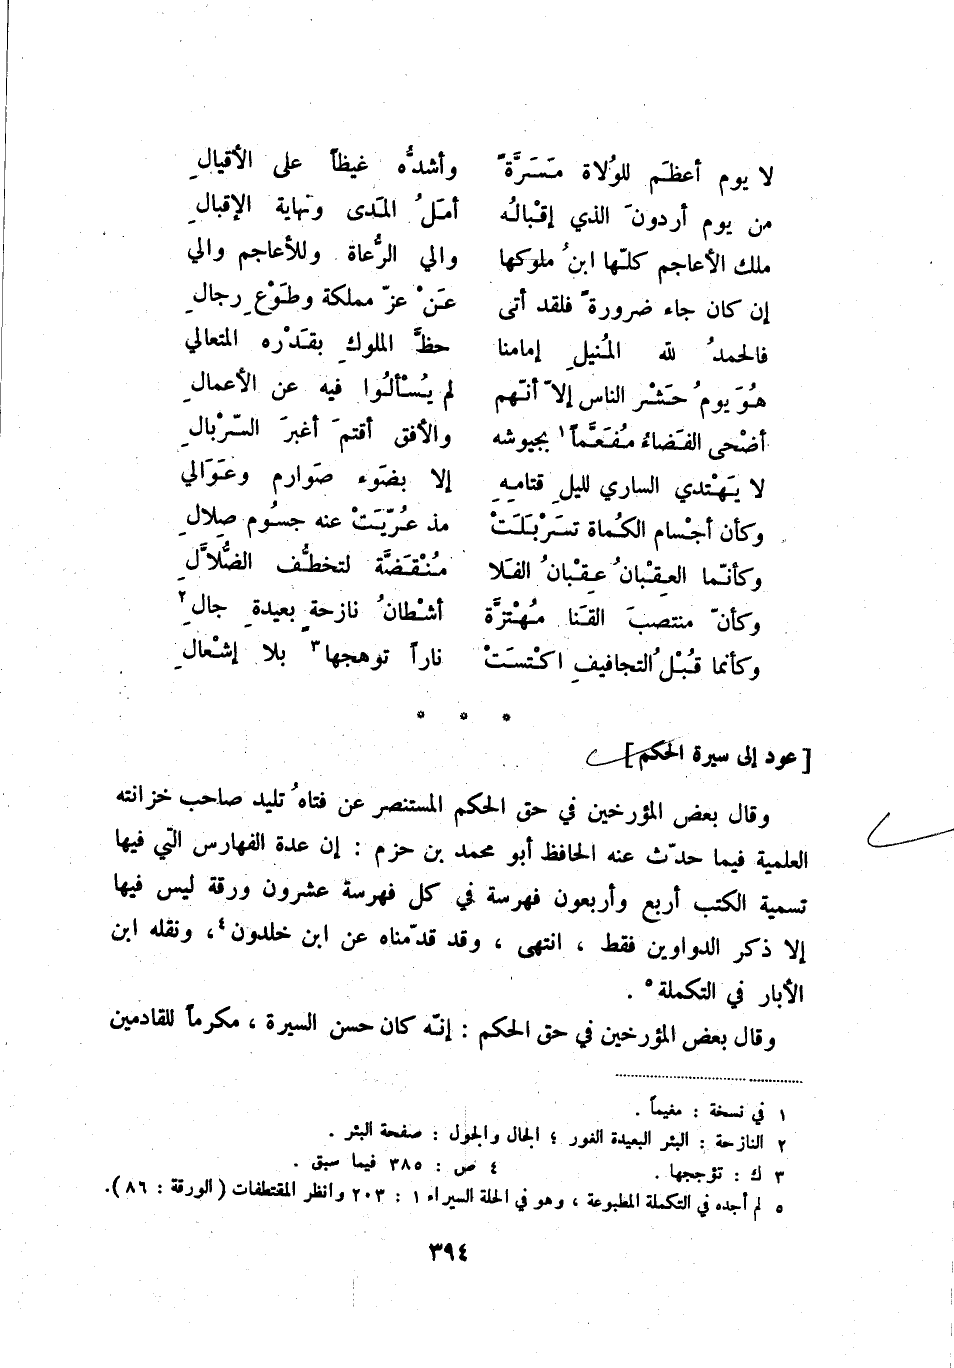 لا يوم أعظَم للوُلاة مَسَرَّةً وأشدُّه غيظاً على الأقيالِ
من يوم أردونَ الذي إقْبالُه أمَلُ المَدى ونهاية الإقبالِ
ملك الأعاجم كلّها ابنُ ملوكها والي الرُّعاة وللأعاجم والي
إن كان جاء ضرورةً فلقد أتى عَنْ عزّ مملكة وطَوْعِ رجالِ
فالحمدُ لله المُنيلِ إمامنا حظَّ الملوكِ بقَدْره المتعالي
هُوَ يومُ حَشْر الناس إلاّ أنّهم لم يُسْألُوا فيه عن الأعمالِ
أضْحى الفَضاءُ مُفَعَّماً١ بجيوشه والأفق أقتمَ أغبرَ السّرْبالِ
لا يَهْتدي الساري لليلِ قتامِهِ إلا بضَوء صَوارم وعَوَالي
وكأن أجْسام الكُماة تسَرْبَلَتْ مذ عُرّيَتْ عنه جسُوم صِلالِ
وكأنّما العِقْبانُ عِقبانُ الفَلا مُنْقَضَّة لتخطُّف الضُّلاَّلِ
وكأنّ منتصبَ القَنا مُهْتزَّة أشْطانُ نازحةٍ بعيدةِ جالِ٢
وكأنما قُبْلُ التجافيفِ اكْتسَتْ ناراً توهجها٣ بلا إشْعالِ
* * *
[ عود إلى سيرة الحكم ]
وقال بعض المؤرخين في حق الحكم المستنصر عن فتاهُ تليد صاحب خزانته
العلمية فيما حدّث عنه الحافظ أبو محمد بن حزم : إن عدة الفهارس التي فيها
تسمية الكتب أربع وأربعون فهرسة في كل فهرسة عشرون ورقة ليس فيها
إلا ذكر الدواوين فقط ، انتهى ، وقد قدّمناه عن ابن خلدون٤ ، ونقله ابن
الأبار في التكملة٥ .
وقال بعض المؤرخين في حق الحكم : إنّه كان حسن السيرة ، مكرماً للقادمين
١ في نسخة : مغيماً .
٢ النازحة : البئر البعيدة الغور ؛ الجال والجول : صفحة البئر .
٣ ك : تؤججها . ٤ ص : ٣٨٥ فيما سبق .
٥ لم أجده في التكملة المطبوعة ، وهو في الحلة السيراء ١ : ٢٠٣ وانظر المقتطفات ( الورقة : ٨٦ ) .
٣٩٤